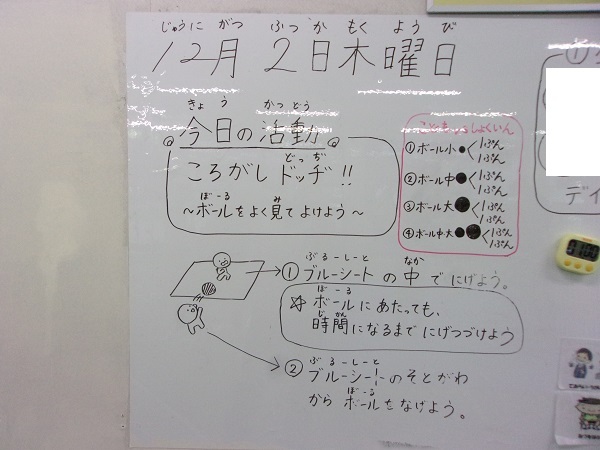 じゅうに がつ ふつ か もく よう び
12月 2日木曜日
きょ う かつ どう
今日の活動
どっ ぢ
ころがし ドッヂ!!
ぼーる み
～ボールをよく見てよけよう～
こども しょくいん
①ボール小●<1ぷん
1ぷん
②ボール中●<1ぷん
1ぷん
③ボール大●<1ぷん
1ぷん
④ボール中大●●<1ぷん
1ぷん
ぶるーしーと なか
①ブルーシートの中でにげよう。
ぼーる
☆ボールにあたっても、
じ かん
時間になるまでにげつづけよう
ぶるーしーと
②ブルーシートのそとがわ
ぼーる
からボールをなげよう。
①
ディ